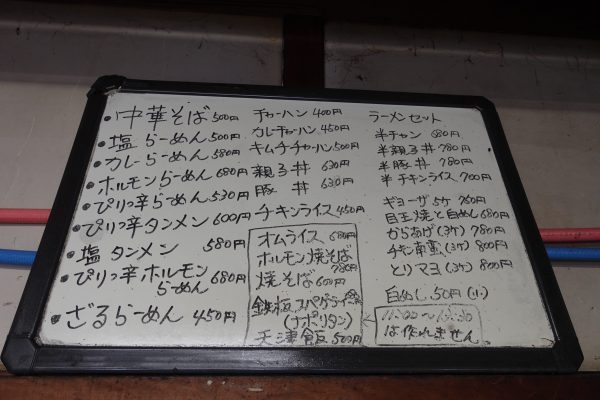 ・中華そば 500円
・塩らーめん 500円
・カレーらーめん 580円
・ホルモンらーめん 680円
・ぴりっ辛らーめん 530円
・ぴりっ辛タンメン 600円
・塩タンメン 580円
・ぴりっ辛ホルモン
らーめん 680円
・ざるらーめん 450円
チャーハン 400円
カレーチャーハン 450円
キムチチャーハン 500円
親子丼 630円
豚丼 630円
チキンライス 450円
オムライス 680円
ホルモン焼そば
780円
焼そば 600円
鉄板スパゲティ
(ナポリタン)
天津飯 500円
ラーメンセット
半チャン 680円
半親子丼 780円
半豚丼 780円
半チキンライス 700円
ギョーザ 5ケ 260円
目玉焼と白めし 680円
からあげ(3ケ) 780円
チキン南蛮(3ケ) 800円
とりマヨ(3ケ) 800円
白めし 50円(小)
は作れません。